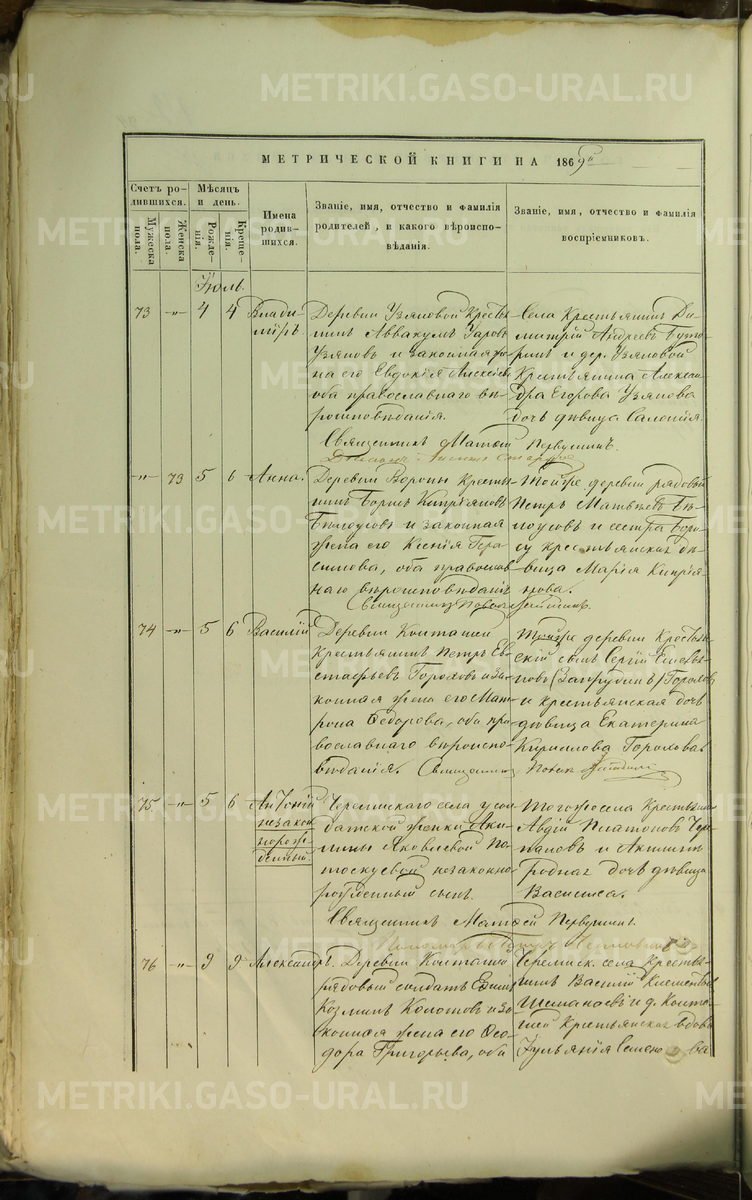 МЕТРИЧЕСКОЙ КНИГИ НА 1869й
Счетъ ро-
дившихся.
Мужеска
пола.
Женска
пола.
Мѣсяцъ
и день.
Рожде-
нія.
Креще-
нія.
Имена
родив-
шихся.
Званіе, имя, отчество и фамилія
родителей, и какого вѣроиспо-
вѣданія.
Званіе, имя, отчество и фамилія
воспріемниковъ.
Іюль.
73 -"- 4 4
Влади-
міръ.
Деревни Узяновой кресть-
нинъ Аввакумъ Уаровъ
Узяновъ и законная же-
на его Евдокія Алексѣева
оба православнаго вѣ-
роисповѣданія.
Села крестьянинъ Ди-
митрій Андреевъ
и дер. Узяновой
крестьянина Алексан-
дра Егорова Узянова
дочь дѣвица Саломія.
Священникъ Матѳей Первушинъ.
-"- 73 5 6
Анна.
Деревни Вороны крестья-
нинъ Борисъ Кипріяновъ
Бѣлоусовъ и законная
жена его Ксенія Гера-
симова, оба православ-
наго вѣроисповѣданія
Тойже деревни рядовой
Петръ Матвѣевъ Бѣ-
лоусовъ и сестра Бори-
су крестьянская дѣ-
вица Марія Кипрія-
нова.
Священникъ Попов
74 -"- 5 6
Василій
Деревни Колташи
крестьянинъ Петръ Ев-
стафьевъ Гороховъ и за-
конная жена его Мат-
рона Ѳедорова, оба пра-
вославнаго вѣроиспо-
вѣданія.
Тойже деревни крестьян-
скій сынъ Сергій
Гороховъ
и крестьянская дочь
дѣвица Екатерина
Кирилова Горохова.
Священникъ Попов
75 -"- 5 6
Антоній
незакон-
норож-
денный.
Черемискаго села у сол-
датской женки Аки-
лины Яковлевой По-
тоскуевой незаконно-
рожденный сынъ.
Тогоже села крестьянинъ
Авдій Платоновъ Че-
пановъ и Акилинѣ
родная дочь дѣвица
Василиса.
Священникъ Матѳей Первушинъ.
76 -"- 9 9
Александръ.
Деревни Колташи
рядовый солдатъ
Козминъ Колотовъ и за-
конная жена его Ѳео-
дора Григорьева, оба
Черемиск. села кресть-
нинъ Василій Климентовъ
Шеманаевъ и д. Колта-
шей крестьянская вдова
Іульянія Семено ва
METRIKI.GASO-URAL.RU